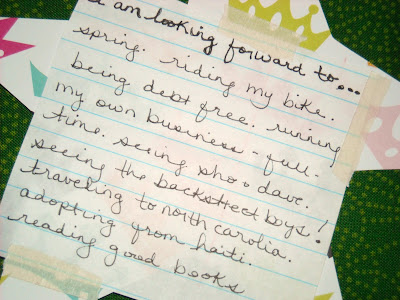 I am looking forward to...
spring. riding my bike.
being debt free. running
my own business - full-
time. seeing sho + dave.
seeing the backstreet boys!
traveling to north carolia.
adopting from haiti.
reading good books